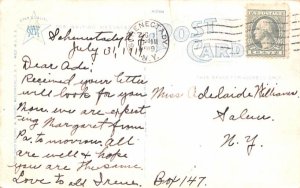 Schenectady
July 31, 1919
Dear Ade:
Received your letter
will look for you
Now we are expect-
ing Margaret from
Pa. to-morrow. All
are well & hope
you are the same
Love to all Irene.
POST
CARD
SCHENECTADY
N.Y.
Miss Adelaide Williams
Salem
N. Y.
Box 147.